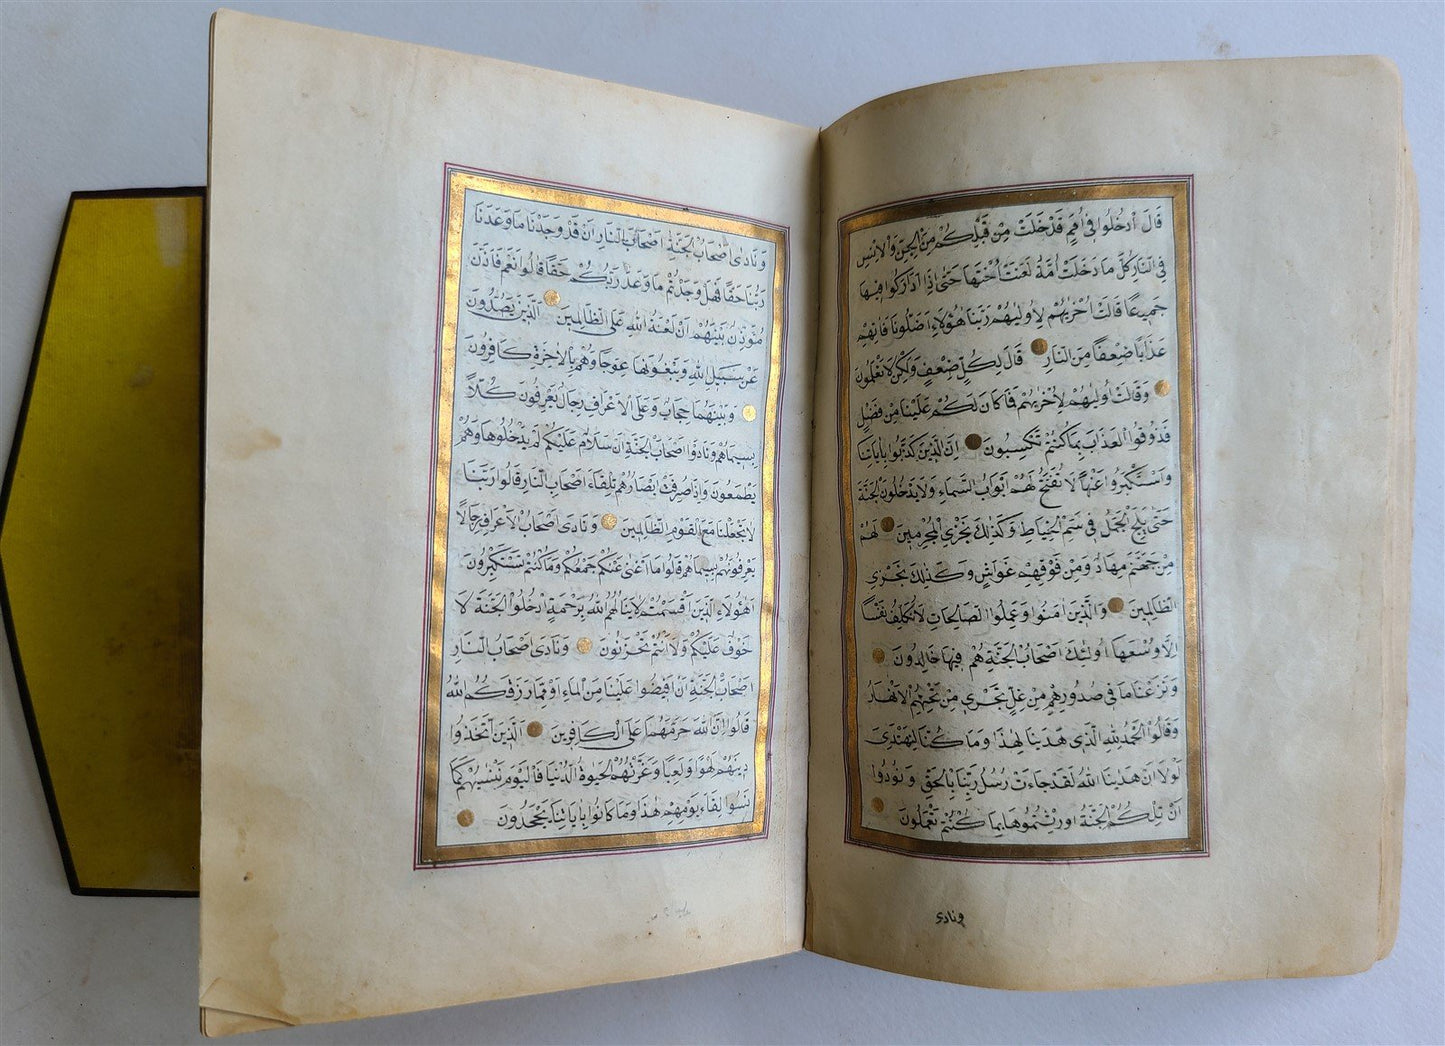 قَالَ ادْخُلُوا فِي أُمَمٍ قَدْ خَلَتْ مِنْ قَبْلِكُمْ مِنَ الْجِنِّ وَالْاِنْسِ
فِي النَّارِ كُلَّمَا دَخَلَتْ أُمَّةٌ لَعَنَتْ أُخْتَهَا حَتَّى إِذَا ادَّارَكُوا فِيهَا
جَمِيعًا قَالَتْ أُخْرٰيهُمْ لِأُولٰيهُمْ رَبَّنَا هٰؤُلَاءِ اَضَلُّونَا فَاٰتِهِمْ
عَذَابًا ضِعْفًا مِنَ النَّارِ قَالَ لِكُلٍّ ضِعْفٌ وَلٰكِنْ لَا تَعْلَمُونَ
وَقَالَتْ اُولٰيهُمْ لِاُخْرٰيهُمْ فَمَا كَانَ لَكُمْ عَلَيْنَا مِنْ فَضْلٍ
فَذُوقُوا الْعَذَابَ بِمَا كُنْتُمْ تَكْسِبُونَ اِنَّ الَّذِينَ كَذَّبُوا بِاٰيَاتِنَا
وَاسْتَكْبَرُوا عَنْهَا لَا تُفَتَّحُ لَهُمْ اَبْوَابُ السَّمَاءِ وَلَا يَدْخُلُونَ الْجَنَّةَ
حَتَّى يَلِجَ الْجَمَلُ فِي سَمِّ الْخِيَاطِ وَكَذٰلِكَ نَجْزِي الْمُجْرِمِينَ لَهُمْ
مِنْ جَهَنَّمَ مِهَادٌ وَمِنْ فَوْقِهِمْ غَوَاشٍ وَكَذٰلِكَ نَجْزِي
الظَّالِمِينَ وَالَّذِينَ اٰمَنُوا وَعَمِلُوا الصَّالِحَاتِ لَا نُكَلِّفُ نَفْسًا
اِلَّا وُسْعَهَا اُولٰئِكَ اَصْحَابُ الْجَنَّةِ هُمْ فِيهَا خَالِدُونَ
وَنَزَعْنَا مَا فِي صُدُورِهِمْ مِنْ غِلٍّ تَجْرِي مِنْ تَحْتِهِمُ الْاَنْهَارُ
وَقَالُوا الْحَمْدُ لِلّٰهِ الَّذِي هَدٰينَا لِهٰذَا وَمَا كُنَّا لِنَهْتَدِيَ
لَوْلَا اَنْ هَدٰينَا اللّٰهُ لَقَدْ جَاءَتْ رُسُلُ رَبِّنَا بِالْحَقِّ وَنُودُوا
اَنْ تِلْكُمُ الْجَنَّةُ اُورِثْتُمُوهَا بِمَا كُنْتُمْ تَعْمَلُونَ
ونادى
وَنَادٰى اَصْحَابُ الْجَنَّةِ اَصْحَابَ النَّارِ اَنْ قَدْ وَجَدْنَا مَا وَعَدَنَا
رَبُّنَا حَقًّا فَهَلْ وَجَدْتُمْ مَا وَعَدَ رَبُّكُمْ حَقًّا قَالُوا نَعَمْ فَاَذَّنَ
مُؤَذِّنٌ بَيْنَهُمْ اَنْ لَعْنَةُ اللّٰهِ عَلَى الظَّالِمِينَ اَلَّذِينَ يَصُدُّونَ
عَنْ سَبِيلِ اللّٰهِ وَيَبْغُونَهَا عِوَجًا وَهُمْ بِالْاٰخِرَةِ كَافِرُونَ
وَبَيْنَهُمَا حِجَابٌ وَعَلَى الْاَعْرَافِ رِجَالٌ يَعْرِفُونَ كُلًّا
بِسِيمٰيهُمْ وَنَادَوْا اَصْحَابَ الْجَنَّةِ اَنْ سَلَامٌ عَلَيْكُمْ لَمْ يَدْخُلُوهَا وَهُمْ
يَطْمَعُونَ وَاِذَا صُرِفَتْ اَبْصَارُهُمْ تِلْقَاءَ اَصْحَابِ النَّارِ قَالُوا رَبَّنَا
لَا تَجْعَلْنَا مَعَ الْقَوْمِ الظَّالِمِينَ وَنَادٰى اَصْحَابُ الْاَعْرَافِ رِجَالًا
يَعْرِفُونَهُمْ بِسِيمٰيهُمْ قَالُوا مَا اَغْنٰى عَنْكُمْ جَمْعُكُمْ وَمَا كُنْتُمْ تَسْتَكْبِرُونَ
اَهٰؤُلَاءِ الَّذِينَ اَقْسَمْتُمْ لَا يَنَالُهُمُ اللّٰهُ بِرَحْمَةٍ اُدْخُلُوا الْجَنَّةَ لَا
خَوْفٌ عَلَيْكُمْ وَلَا اَنْتُمْ تَحْزَنُونَ وَنَادٰى اَصْحَابُ النَّارِ
اَصْحَابَ الْجَنَّةِ اَنْ اَفِيضُوا عَلَيْنَا مِنَ الْمَاءِ اَوْ مِمَّا رَزَقَكُمُ اللّٰهُ
قَالُوا اِنَّ اللّٰهَ حَرَّمَهُمَا عَلَى الْكَافِرِينَ اَلَّذِينَ اتَّخَذُوا
دِينَهُمْ لَهْوًا وَلَعِبًا وَغَرَّتْهُمُ الْحَيٰوةُ الدُّنْيَا فَالْيَوْمَ نَنْسٰيهُمْ كَمَا
نَسُوا لِقَاءَ يَوْمِهِمْ هٰذَا وَمَا كَانُوا بِاٰيَاتِنَا يَجْحَدُونَ